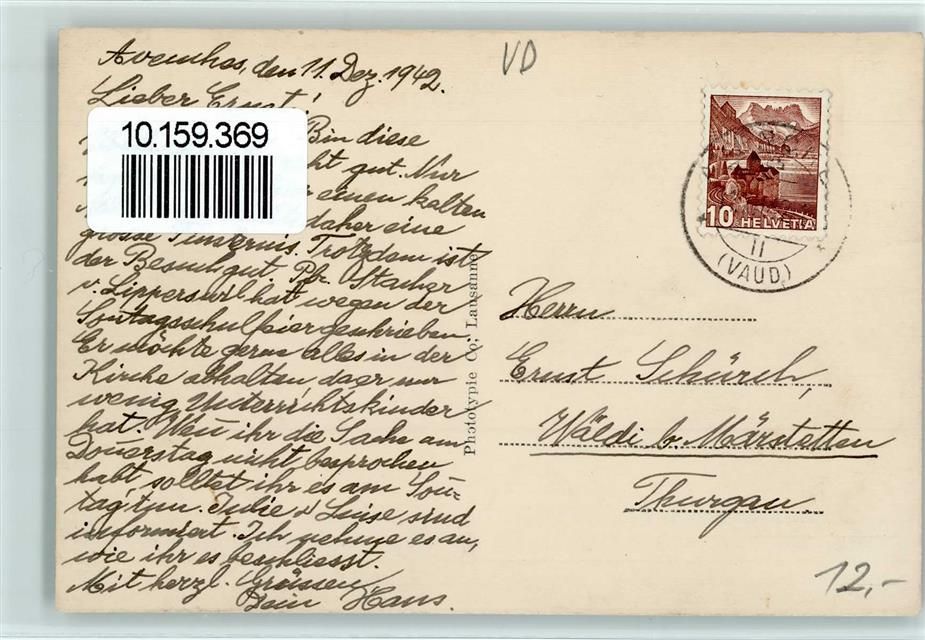 Avenches, den 11. Dez. 1942.
Lieber Ernst!
Bin diese
gut. Nur
einen kalten
daher eine
grosse Finsternis. Trotzdem ist
der Besuch gut. Pfr. Stacher
v. Lipperswil hat wegen der
Sontagsschulfeier geschrieben
Er möchte gern alles in der
Kirche abhalten da er nur
wenig Unterrichtskinder
hat. Wen ihr die Sache am
Donerstag nicht besprochen
habt, solltet ihr es am Son=
tag tun. Julie & Luise sind
informiert. Ich nehme es an,
wie ihr es beschliesst.
Mit herzl. Grüssen
Dein Hans.
10.159.369
VD
10 HELVETIA
II
(VAUD)
Phototypie Co. Lausanne
Herrn
Ernst Schürch,
Wäldi b. Märstetten
Thurgau.
12,-